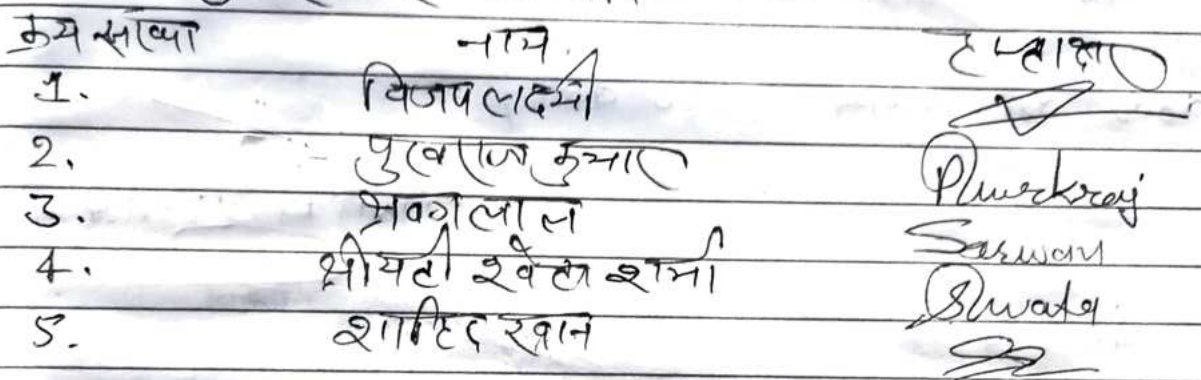 क्रम संख्या नाम हस्ताक्षर
1. विजय लक्ष्मी
2. पुखराज कुमार Phukraj
3. श्रवणलाल Sarwan
4. श्रीमती श्वेता शर्मा Shwata
5. शाहिद खान